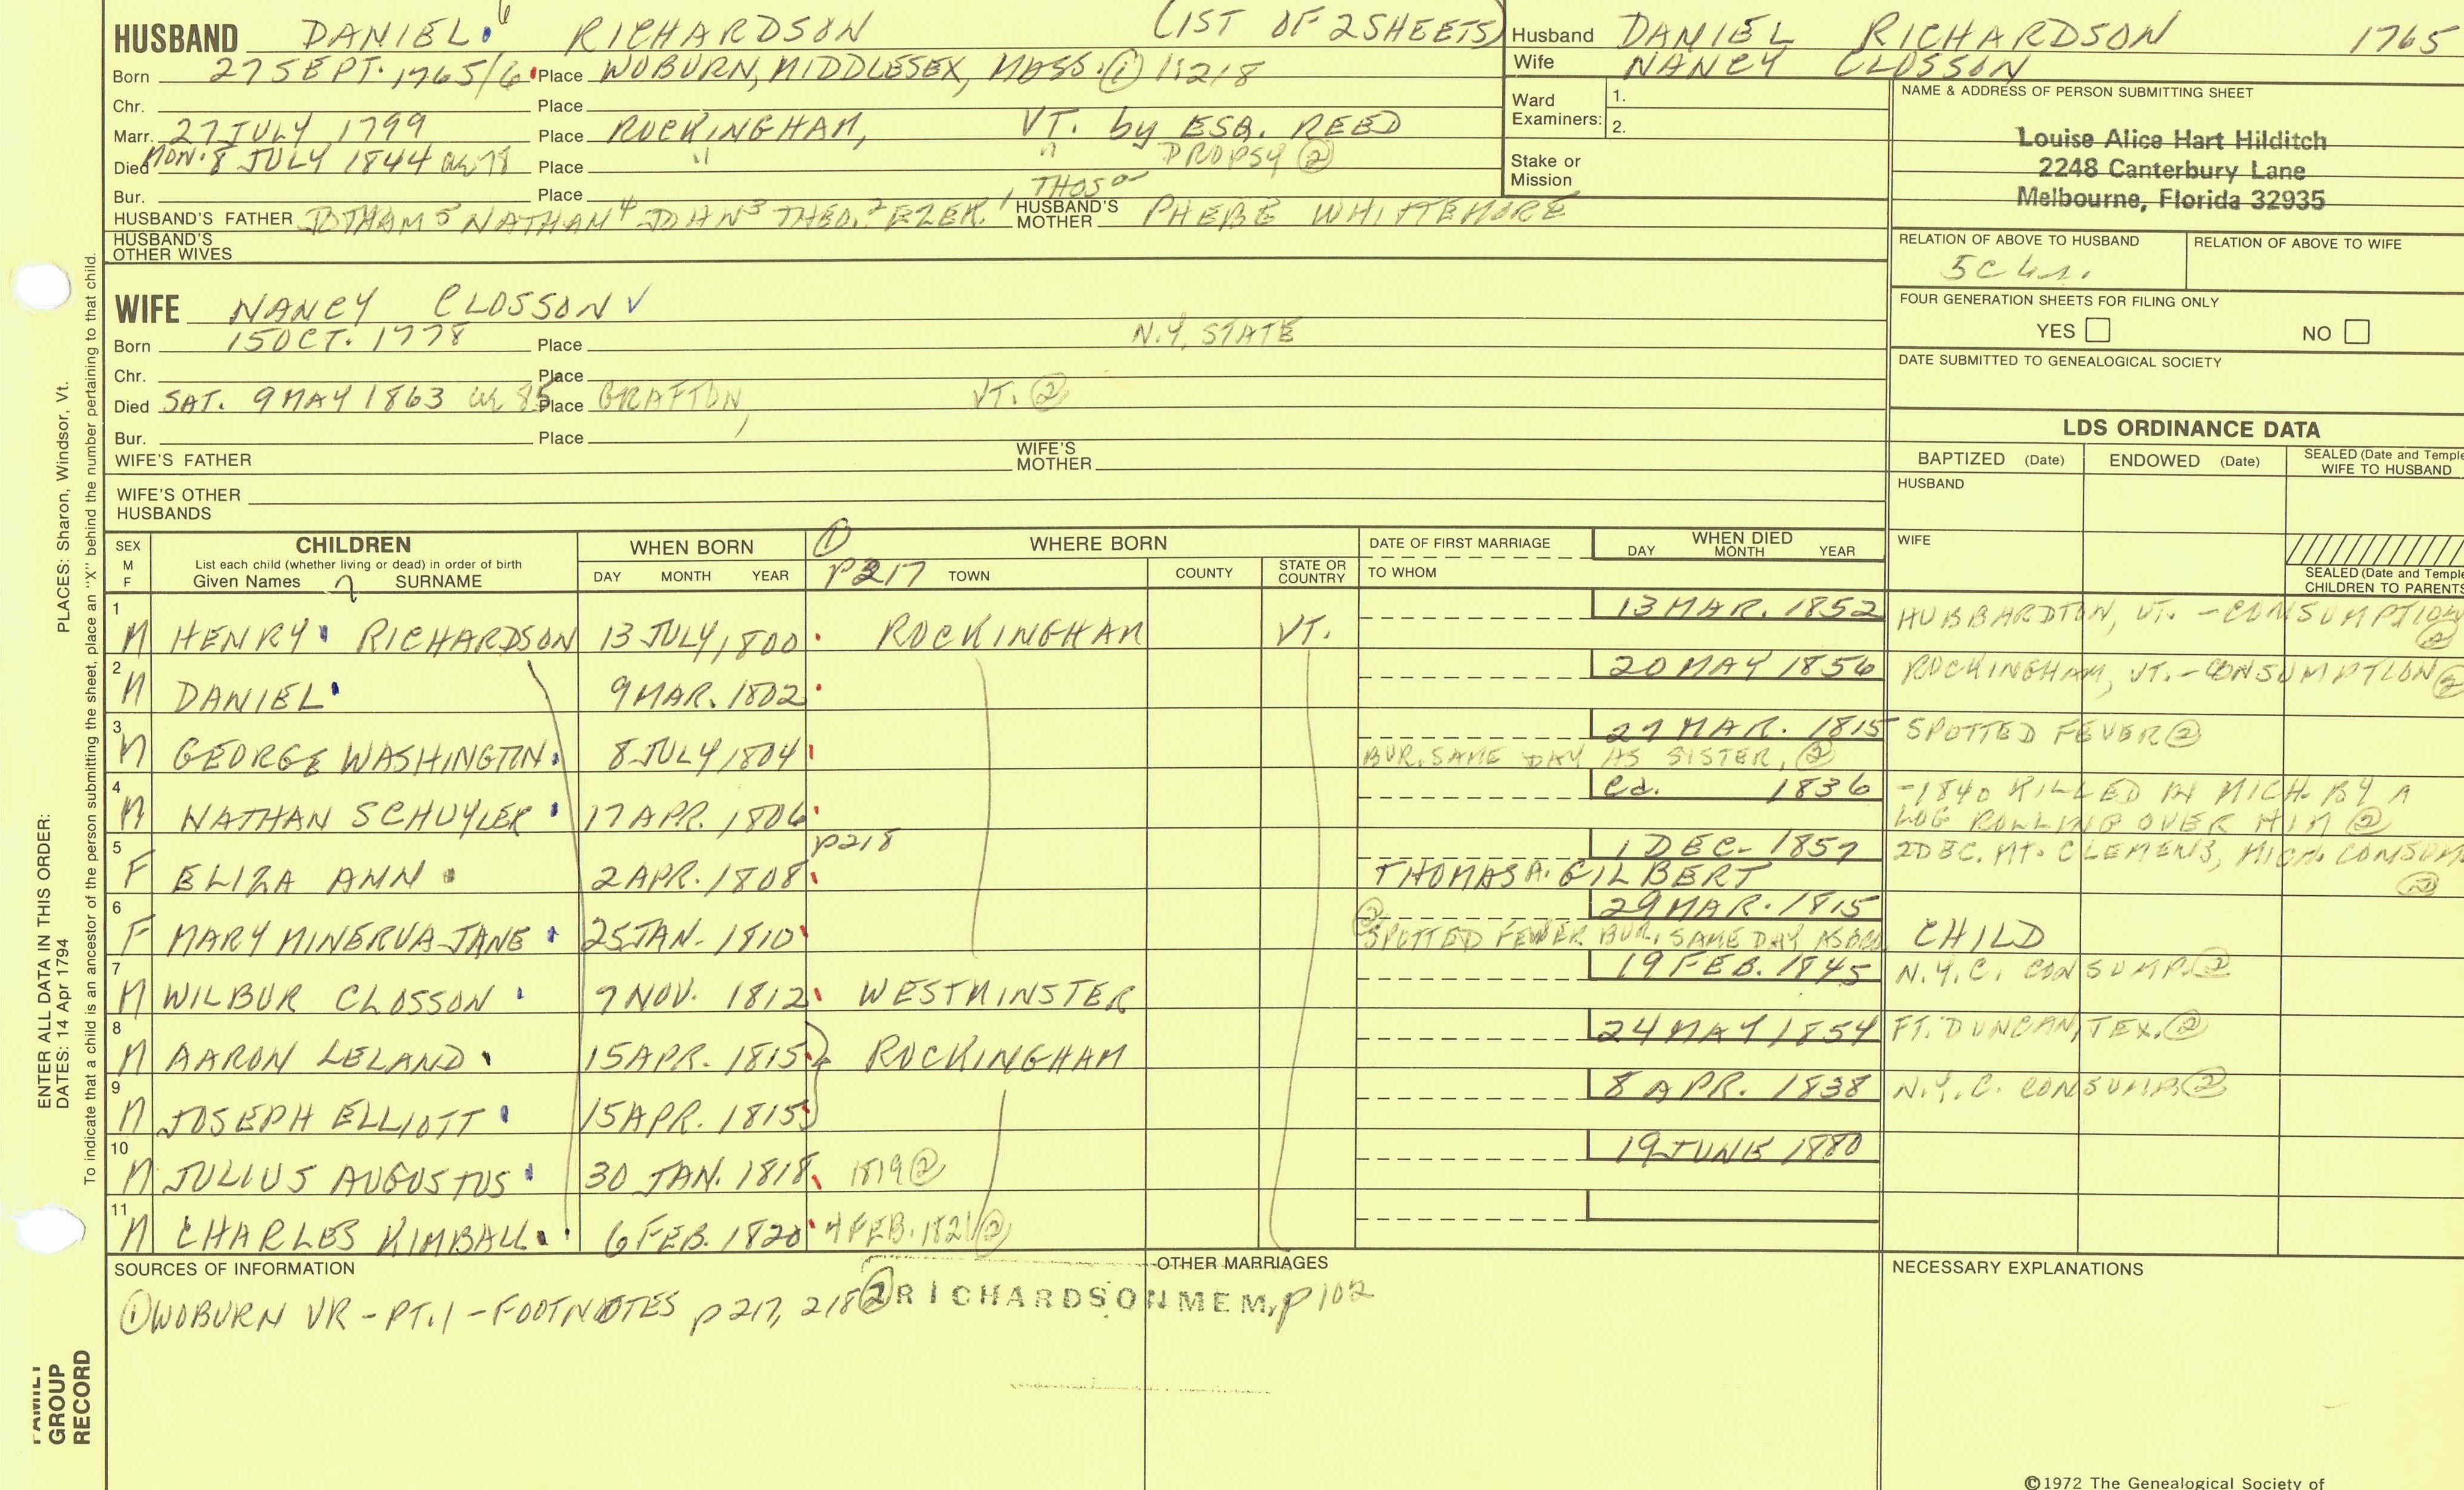 HUSBAND DANIEL 6 RICHARDSON (1ST OF 2 SHEETS)
Born 27 SEPT. 1765/6 Place WOBURN, MIDDLESEX, MASS. ①
Chr. Place
Marr. 27 JULY 1799 Place ROCKINGHAM, VT. by ESQ. REED
Died MON. 8 JULY 1844 ae 78 Place " " DROPSY ②
Bur. Place
HUSBAND'S FATHER JOTHAM 5 NATHAN 4 JOHN 3 THEO. 2 EZEK. 1 THOS 0 HUSBAND'S MOTHER PHEBE WHITTEMORE
HUSBAND'S OTHER WIVES
WIFE NANCY CLOSSON ✓
Born 15 OCT. 1778 Place N.Y. STATE
Chr. Place
Died SAT. 9 MAY 1863 ae 85 Place GRAFTON, VT. ②
Bur. Place
WIFE'S FATHER WIFE'S MOTHER
WIFE'S OTHER HUSBANDS
Husband DANIEL RICHARDSON 1765
Wife NANCY CLOSSON
Ward Examiners: 1.
2.
Stake or Mission
NAME & ADDRESS OF PERSON SUBMITTING SHEET
Louise Alice Hart Hilditch
2248 Canterbury Lane
Melbourne, Florida 32935
RELATION OF ABOVE TO HUSBAND RELATION OF ABOVE TO WIFE
FOUR GENERATION SHEETS FOR FILING ONLY
YES NO
DATE SUBMITTED TO GENEALOGICAL SOCIETY
LDS ORDINANCE DATA
BAPTIZED (Date) ENDOWED (Date) SEALED (Date and Temple
WIFE TO HUSBAND
HUSBAND
WIFE
SEALED (Date and Temple
CHILDREN TO PARENTS
SEX M F CHILDREN WHEN BORN ① WHERE BORN DATE OF FIRST MARRIAGE WHEN DIED
List each child (whether living or dead) in order of birth
Given Names 7 SURNAME DAY MONTH YEAR p217 TOWN COUNTY STATE OR COUNTRY TO WHOM DAY MONTH YEAR
1 M HENRY RICHARDSON 13 JULY, 1800 ROCKINGHAM VT. 13 MAR. 1852 HUBBARDTON, VT. - CONSUMPTION ②
2 M DANIEL 9 MAR. 1802 20 MAY 1856 ROCKINGHAM, VT. - CONSUMPTION ②
3 M GEORGE WASHINGTON 8 JULY, 1804 27 MAR. 1815 SPOTTED FEVER ②
BUR. SAME DAY AS SISTER, ②
4 M NATHAN SCHUYLER 17 APR. 1806 ca. 1836 -1840 KILLED IN MICH. BY A
LOG ROLLING OVER HIM ②
5 F ELIZA ANN 2 APR. 1808 p218 THOMAS A. GILBERT 1 DEC. 1857 2 DEC. MT. CLEMENS, MICH. CONSUM
②
6 F MARY MINERVA JANE 25 JAN. 1810 29 MAR. 1815 CHILD
② SPOTTED FEVER BUR. SAME DAY AS BRO.
7 M WILBUR CLOSSON 7 NOV. 1812 WESTMINSTER 19 FEB. 1845 N.Y.C. CONSUMP. ②
8 M AARON LELAND 15 APR. 1815 ROCKINGHAM 24 MAY 1854 FT. DUNCAN, TEX. ②
9 M JOSEPH ELLIOTT 15 APR. 1815 8 APR. 1838 N.Y.C. CONSUMP. ②
10 M JULIUS AUGUSTUS 30 JAN. 1818 1819 ② 19 JUNE 1880
11 M CHARLES KIMBALL 6 FEB. 1820 4 FEB. 1821 ②
SOURCES OF INFORMATION OTHER MARRIAGES NECESSARY EXPLANATIONS
① WOBURN VR - PT. 1 - FOOTNOTES p 217, 218 ② RICHARDSON MEM, p 102
©1972 The Genealogical Society of
PLACES: Sharon, Windsor, Vt.
ENTER ALL DATA IN THIS ORDER:
DATES: 14 Apr 1794
To indicate that a child is an ancestor of the person submitting the sheet, place an "X" behind the number pertaining to that child.
FAMILY
GROUP
RECORD